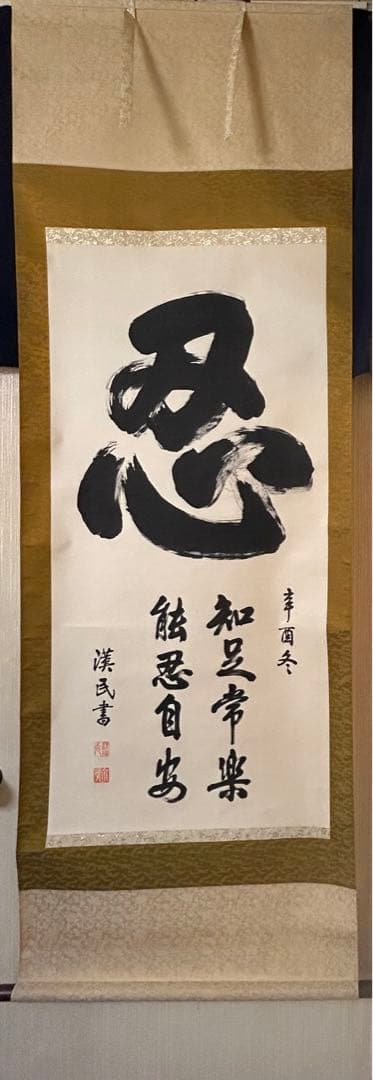 忍
辛酉冬
知足常楽
能忍自安
漢民書